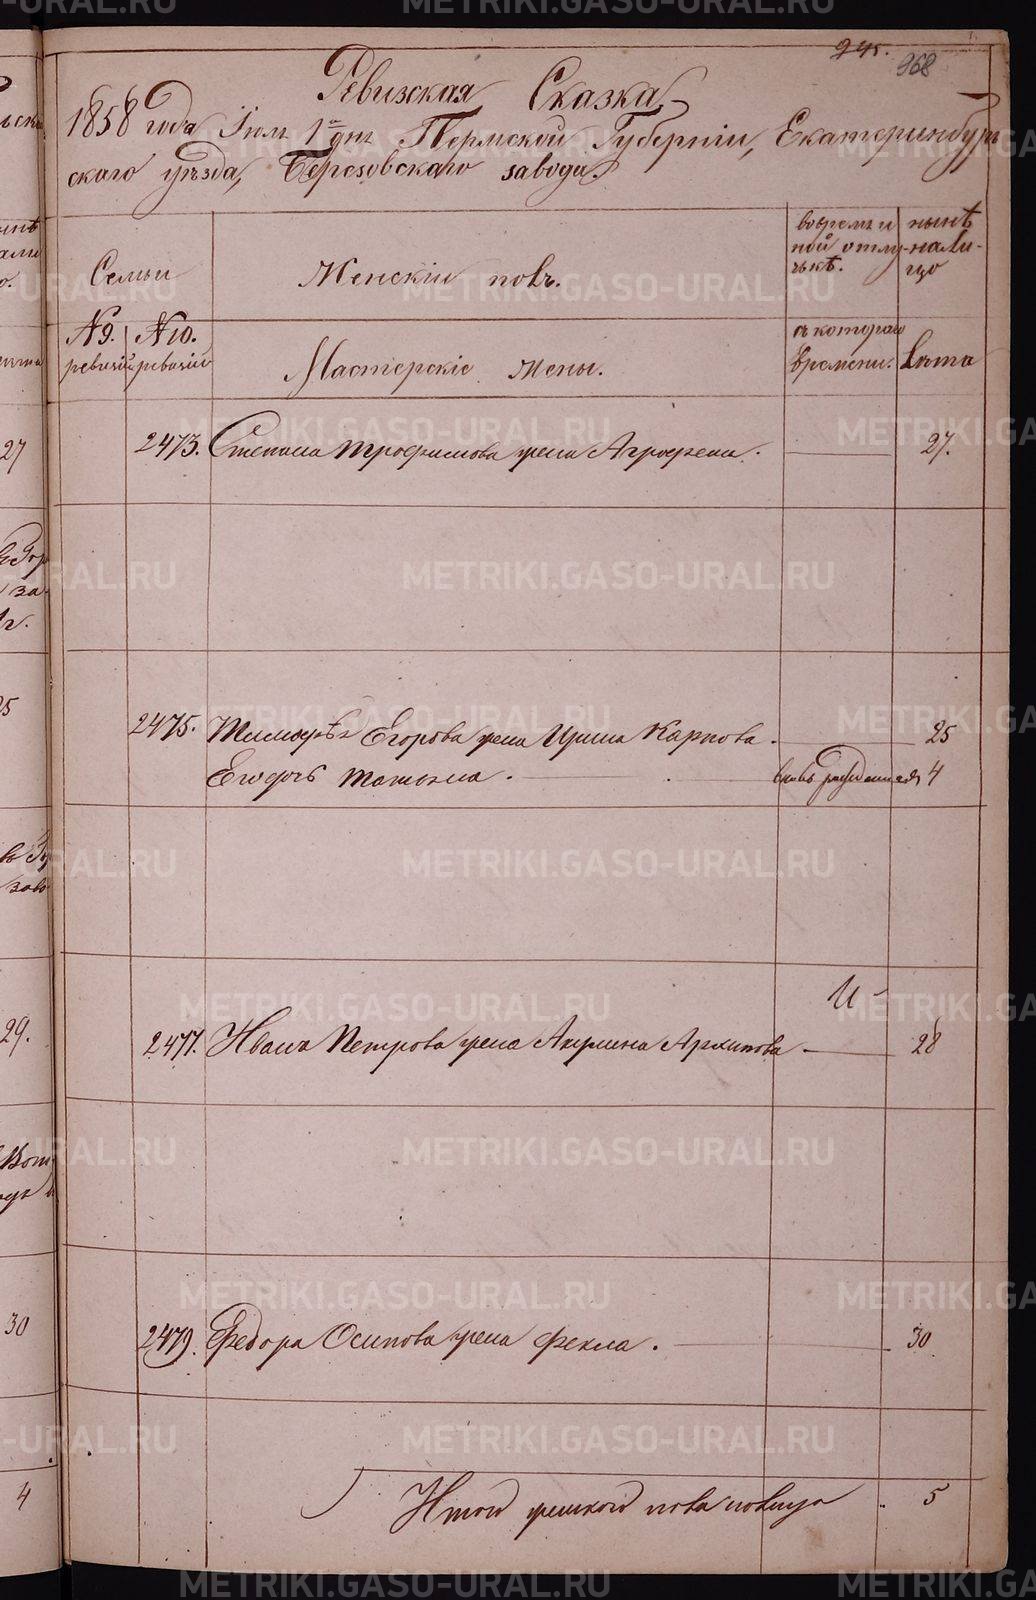 245.
968
Ревизская Сказка
1858 года Iюля 1го дня Пермской Губернiи, Екатеринбург
скаго уѣзда, Березовскаго завода.
Семьи
Женскiй полъ.
во времен
ной отлу-
чкѣ.
нынѣ
нали-
цо
№ 9.
ревизiи
№ 10.
ревизiи
Мастерскiе Жены.
съ котораго
времени.
Лѣта
2473. Степана Трофимова жена Аграфена. 27.
2475. Тимофѣя Егорова жена Ирина Карпова. 25
Его дочь Татьяна. вновь рожденная 4
2477. Ивана Петрова жена Акулина Архипова 28
2479. Федора Осипова жена Фекла. 30
Итого женского пола налицо 5
27
25
29.
30
4
METRIKI.GASO-URAL.RU